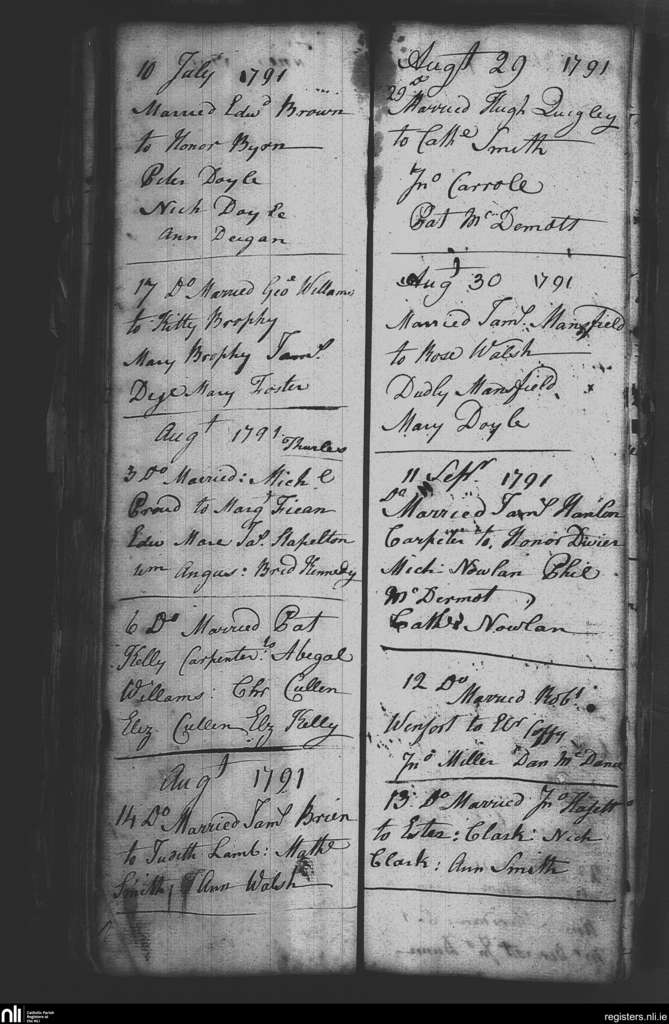 10 July 1791
Married Edwd Brown
to Honor Byrn
Peter Doyle
Nich Doyle
Ann Deegan
17 Do Married Geo Willams
to Kitty Brophy
Mary Brophy Jams
Mary Foster
Augt 1791 Thurles
3 Do Married: Mich
Proud to Margt
Edw Mare Jas. Stapelton
Wm Angus: Brid Kennedy
6 Do Married Pat
Kelly Carpenter to Abegal
Willams: Chr Cullen
Eliz Cullen Elz Kelly
Augt 1791
14 Do Married Jams Brien
to Judith Lamb: Mathw
Smith, Ann Walsh
Augt 29 1791
29 Do Married Hugh Quigley
to Cathe Smith
Jno Carrole
Pat McDemott
Augt 30 1791
Married Jams Mansfield
to Rose Walsh
Dudly Mansfield
Mary Doyle
11 Sepr 1791
Do Married Jams Hanlon
Carpiter to Honor
Mich: Nowlan Phil
McDermot,
Cathe Nowlan
12 Do
Married Robt
to
Jno Miller Dan McDanel
13 Do Married Jno
to Ester: Clark: Nich
Clark: Ann Smith
nli
Catholic Parish
Registers at
the NLI
registers.nli.ie